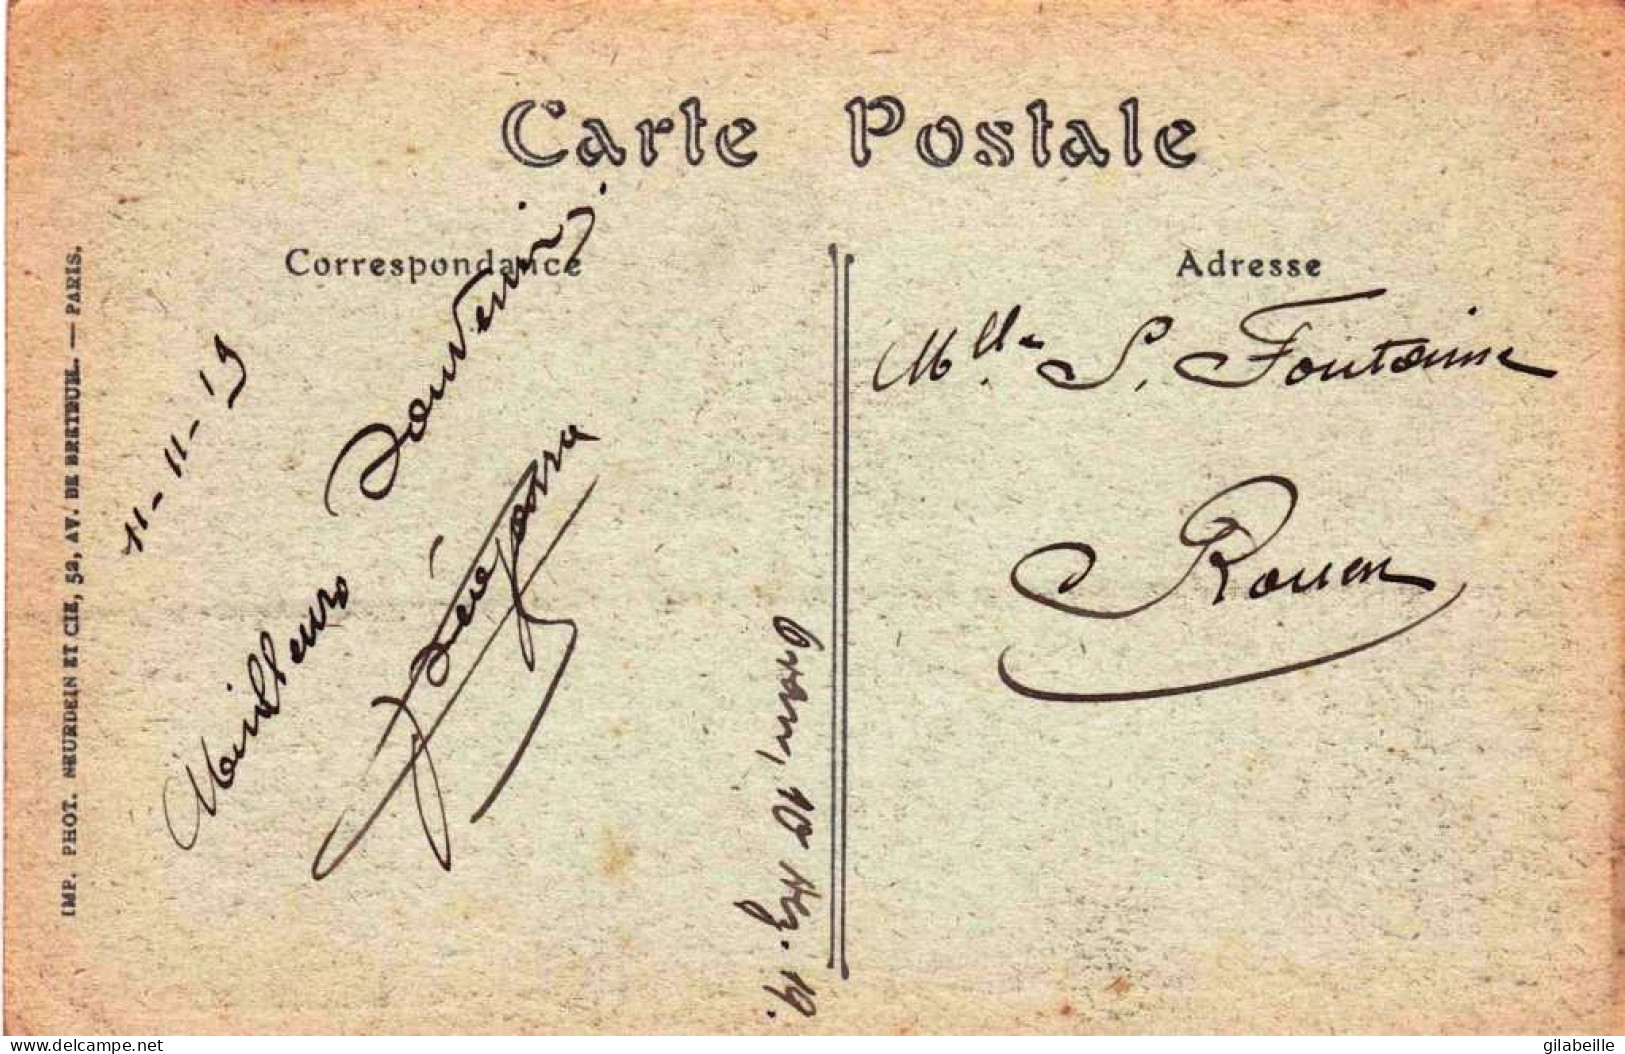 Carte Postale
Correspondance
Adresse
11-11-19
Meilleurs
Souvenirs
Mlle S. Fontaine
Rouen
19.
IMP. PHOT. NEURDEIN ET CIE, 52, AV. DE BRETEUIL. — PARIS.
delcampe.net
gilabeille